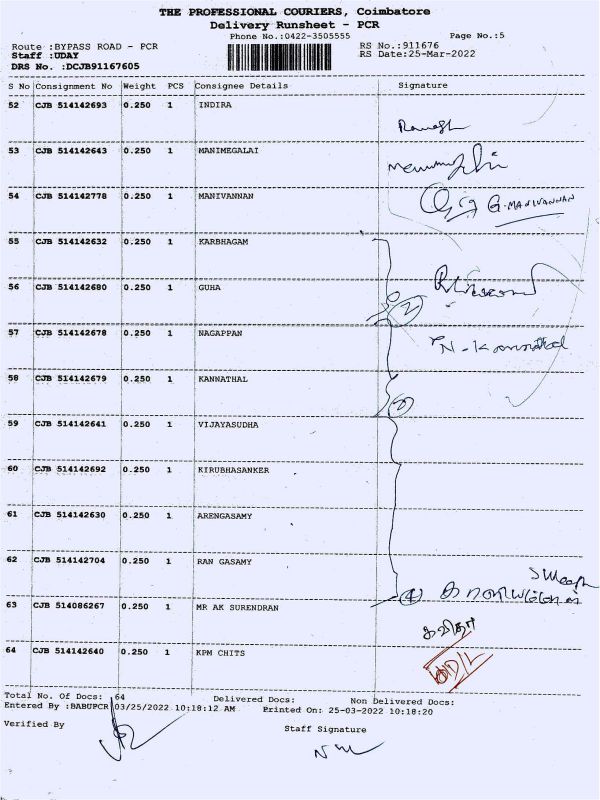 THE PROFESSIONAL COURIERS, Coimbatore
Delivery Runsheet - PCR
Phone No.:0422-3505555 Page No.:5
Route :BYPASS ROAD - PCR RS No.:911676
Staff :UDAY RS Date:25-Mar-2022
DRS No. :DCJB91167605
S No Consignment No Weight PCS Consignee Details Signature
52 CJB 514142693 0.250 1 INDIRA
Ramesh
53 CJB 514142643 0.250 1 MANIMEGALAI
54 CJB 514142778 0.250 1 MANIVANNAN
G. MANIVANNAN
55 CJB 514142632 0.250 1 KARBHAGAM
56 CJB 514142680 0.250 1 GUHA
2
57 CJB 514142678 0.250 1 NAGAPPAN
N. Kannathal
58 CJB 514142679 0.250 1 KANNATHAL
59 CJB 514142641 0.250 1 VIJAYASUDHA
60 CJB 514142692 0.250 1 KIRUBHASANKER
61 CJB 514142630 0.250 1 ARENGASAMY
62 CJB 514142704 0.250 1 RAN GASAMY
4
63 CJB 514086267 0.250 1 MR AK SURENDRAN
கவிதா
64 CJB 514142640 0.250 1 KPM CHITS
Total No. Of Docs: 64 Delivered Docs: Non Delivered Docs:
Entered By :BABUPCR 03/25/2022 10:18:12 AM Printed On: 25-03-2022 10:18:20
Verified By Staff Signature